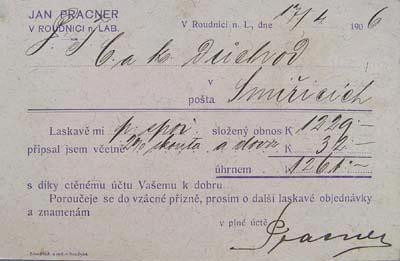 JAN PRACNER
V ROUDNICI n. LAB.
V Roudnici n. L., dne 17/4 1906
C a k Důchod
v
pošta Smiřicích
Laskavě mi p. spoř. složený obnos K 1229.—
připsal jsem včetně 2% skonta a dovoz K 32.—
úhrnem 1261.—
s díky ctěnému účtu Vašemu k dobru.
Poroučeje se do vzácné přízně, prosím o další laskavé objednávky
a znamenám
v plné úctě
Pracner